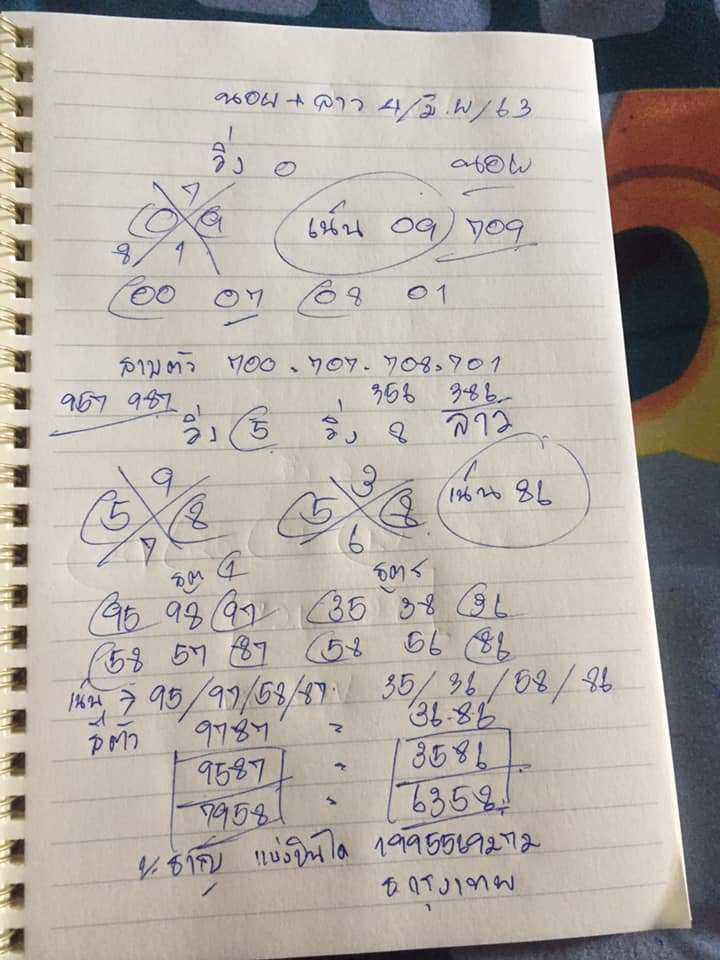 นอย + ลาว 4/มี.ค/63
วิ่ง 0 นอย
7
0 9 เน้น 09 709
8 1
00 07 08 01
สามตัว 700.707.708.701
957 987 356 386
วิ่ง 5 วิ่ง 8 ลาว
9 3
5 8 5 8 เน้น 86
7 6
สูตร
95 98 97 35 38 36
58 57 87 58 56 86
เน้น → 95/97/58/87 35/36/58/86
สี่ตัว 9787 " 36.86
9587 " 3586
7958 " 6358
แบ่งปันได้ 1995569272
ธ กรุงเทพ